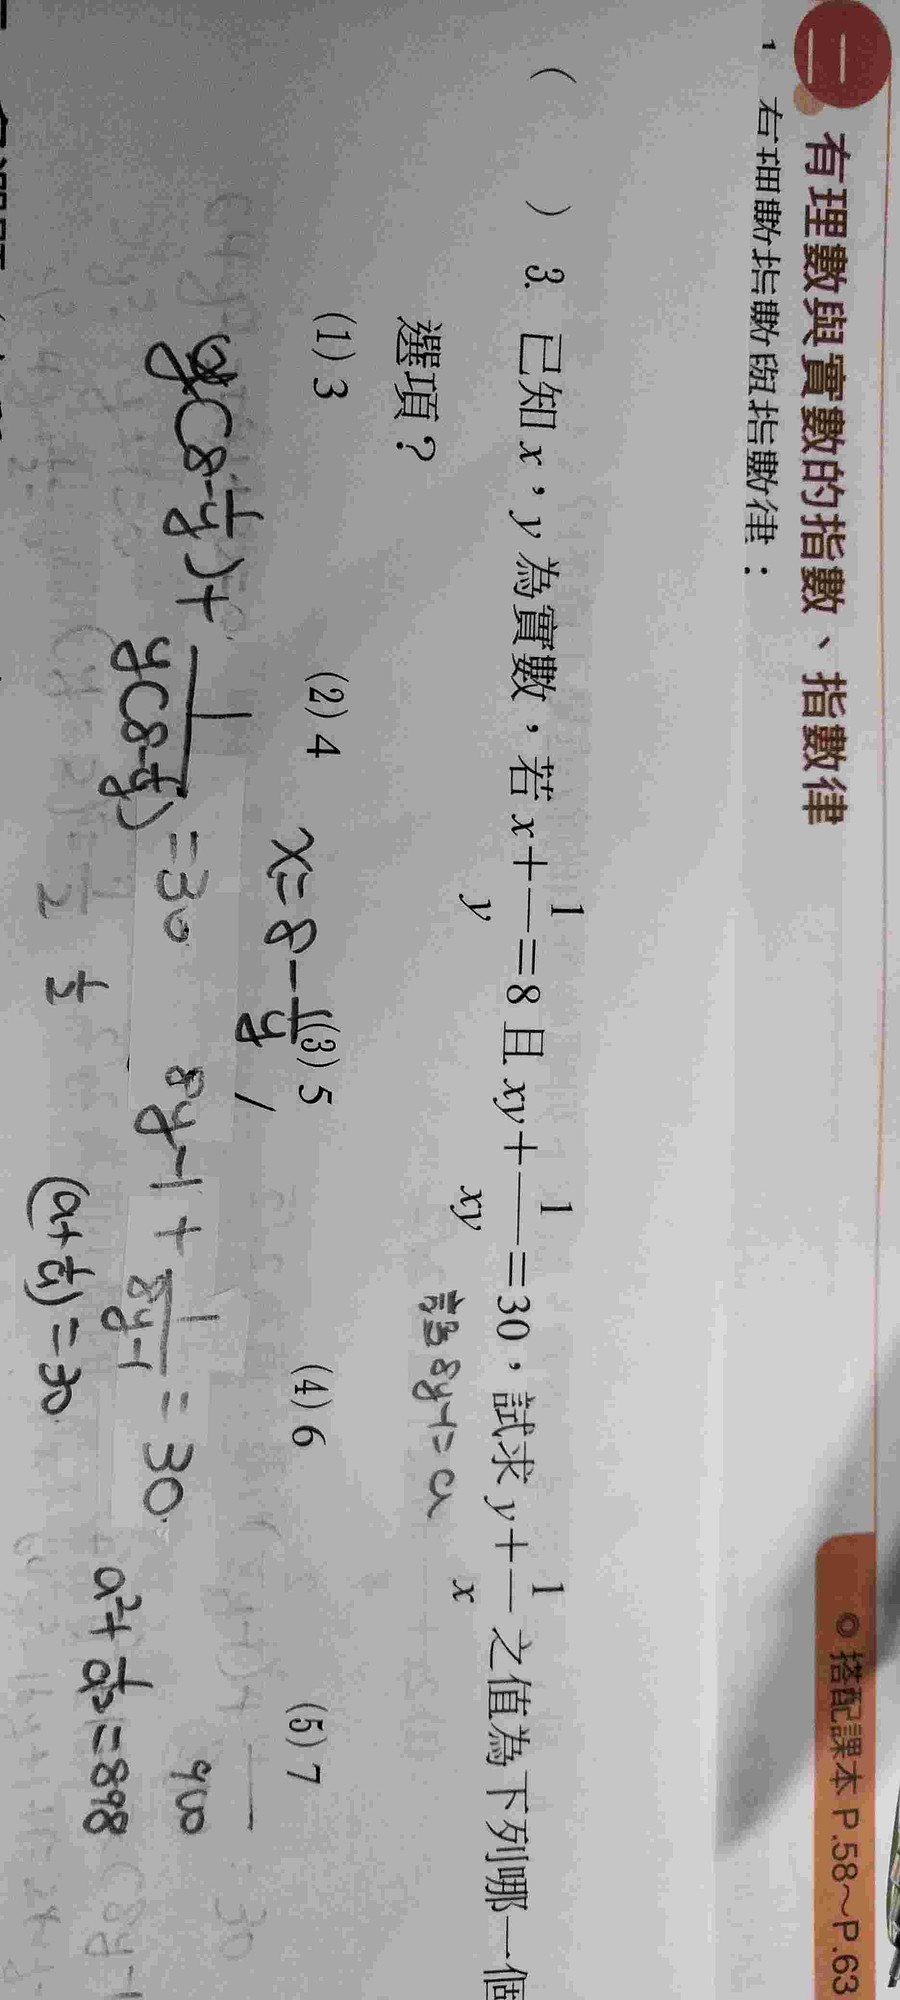 二 有理數與實數的指數、指數律
◎搭配課本 P.58~P.63
1 有理數指數與指數律：
( ) 3. 已知 x，y 為實數，若 x+1/y=8 且 xy+1/xy=30，試求 y+1/x 之值為下列哪一個
選項？
設8y-1=a
(1) 3 (2) 4 (3) 5 (4) 6 (5) 7
x=8-1/y
y(8-1/y)+1/y(8-1/y)=30 8y-1+1/8y-1=30
900
a²+1/a²=898
1/2
(a+1/a)=30